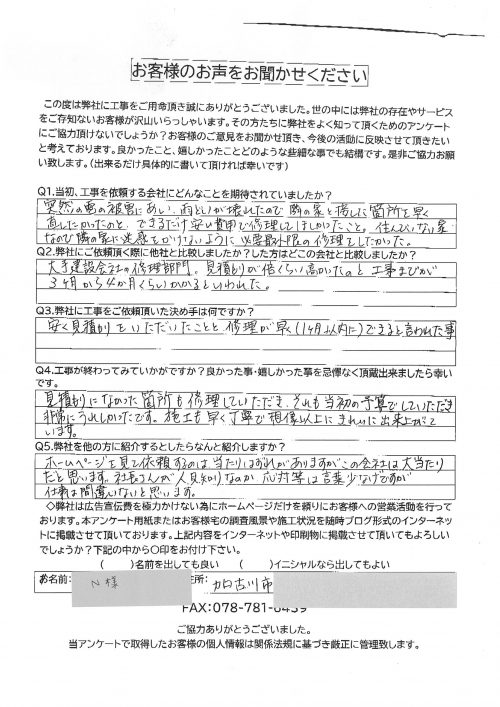 お客様のお声をお聞かせください
この度は弊社に工事をご用命頂き誠にありがとうございました。世の中には弊社の存在やサービス
をご存知ないお客様が沢山いらっしゃいます。その方たちに弊社をよく知って頂くためのアンケート
にご協力頂けないでしょうか?お客様のご意見をお聞かせ頂き、今後の活動に反映させて頂きたい
と考えております。良かったこと、嬉しかったことどのような些細な事でも結構です。是非ご協力お願
い致します。(出来るだけ具体的に書いて頂ければ幸いです)
Q1.当初、工事を依頼する会社にどんなことを期待されていましたか?
突然の雪の被害にあい、雨といが壊れたので隣の家と接した箇所を早く
直したかったのと、できるだけ安い費用で修理してほしかったこと。住んでいない家
なので隣の家に迷惑をかけないように必要最小限の修理をしたかった。
Q2.弊社にご依頼頂く際に他社と比較しましたか?した方はどこの会社と比較しましたか?
大手建設会社の修理部門。見積りが倍くらい高かったのと工事までが
3ヶ月から4か月くらいかかるといわれた。
Q3.弊社に工事をご依頼頂いた決め手は何ですか?
安く見積りをいただいたことと、修理が早く(1ヶ月以内に)できると言われた事
Q4.工事が終わってみていかがですか?良かった事・嬉しかった事を忌憚なく頂蔵出来ましたら幸い
です。
見積りになかった箇所も修理していただき、それも当初の予算でしていただき
非常にうれしかったです。施工も早く丁寧で想像以上にきれいに出来上がって
います。
Q5.弊社を他の方に紹介するとしたらなんと紹介しますか?
ホームページを見て依頼するのは当たりはずれがありますがこの会社は大当たり
だと思います。社長さんが人見知りなのか、応対等は言葉少なげですが
仕事は間違いないと思います。
◇弊社は広告宣伝費を極力かけない為にホームページだけを頼りにお客様への営業活動を行って
おります。本アンケート用紙またはお客様宅の調査風景や施工状況を随時ブログ形式のインターネッ
トに掲載させて頂いております。上記内容をインターネットや印刷物に掲載させて頂いてもよろしい
でしょうか?下記の中から〇印をお付け下さい。
( )名前を出しても良い ( )イニシャルなら出してもよい
お名前: N様 住所: 加古川市
FAX:078-781-6439
ご協力ありがとうございました。
当アンケートで取得したお客様の個人情報は関係法規に基づき厳正に管理致します。